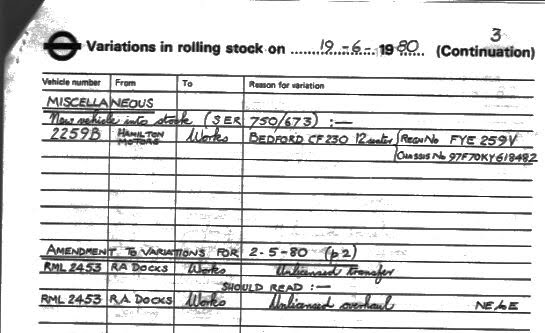 3
Variations in rolling stock on 19-6-1980 (Continuation)
Vehicle number From To Reason for variation
MISCELLANEOUS
New vehicle into stock (SER 750/673) :—
2259B HAMILTON MOTORS Works BEDFORD CF230 12 seater (REGN No FYE 259V
CHASSIS No 97F70KY618482
AMENDMENT TO VARIATIONS FOR 2-5-80 (p2)
RML 2453 R.A DOCKS Works Unlicensed transfer
SHOULD READ :—
RML 2453 R.A DOCKS Works Unlicensed overhaul NE/LE